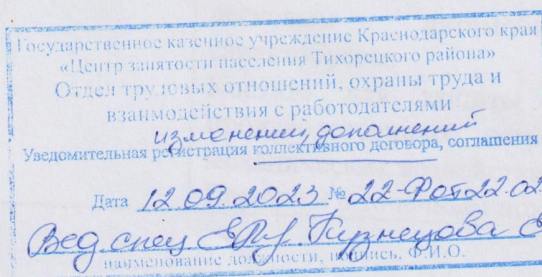 Государственное казенное учреждение Краснодарского края
«Центр занятости населения Тихорецкого района»
Отдел трудовых отношений, охраны труда и
взаимодействия с работодателями
изменений, дополнений
Уведомительная регистрация коллективного договора, соглашения
Дата 12.09.2023 № 22-Фот22.02
Вед. спец. Кузнецова Е
наименование должности, подпись, Ф.И.О.